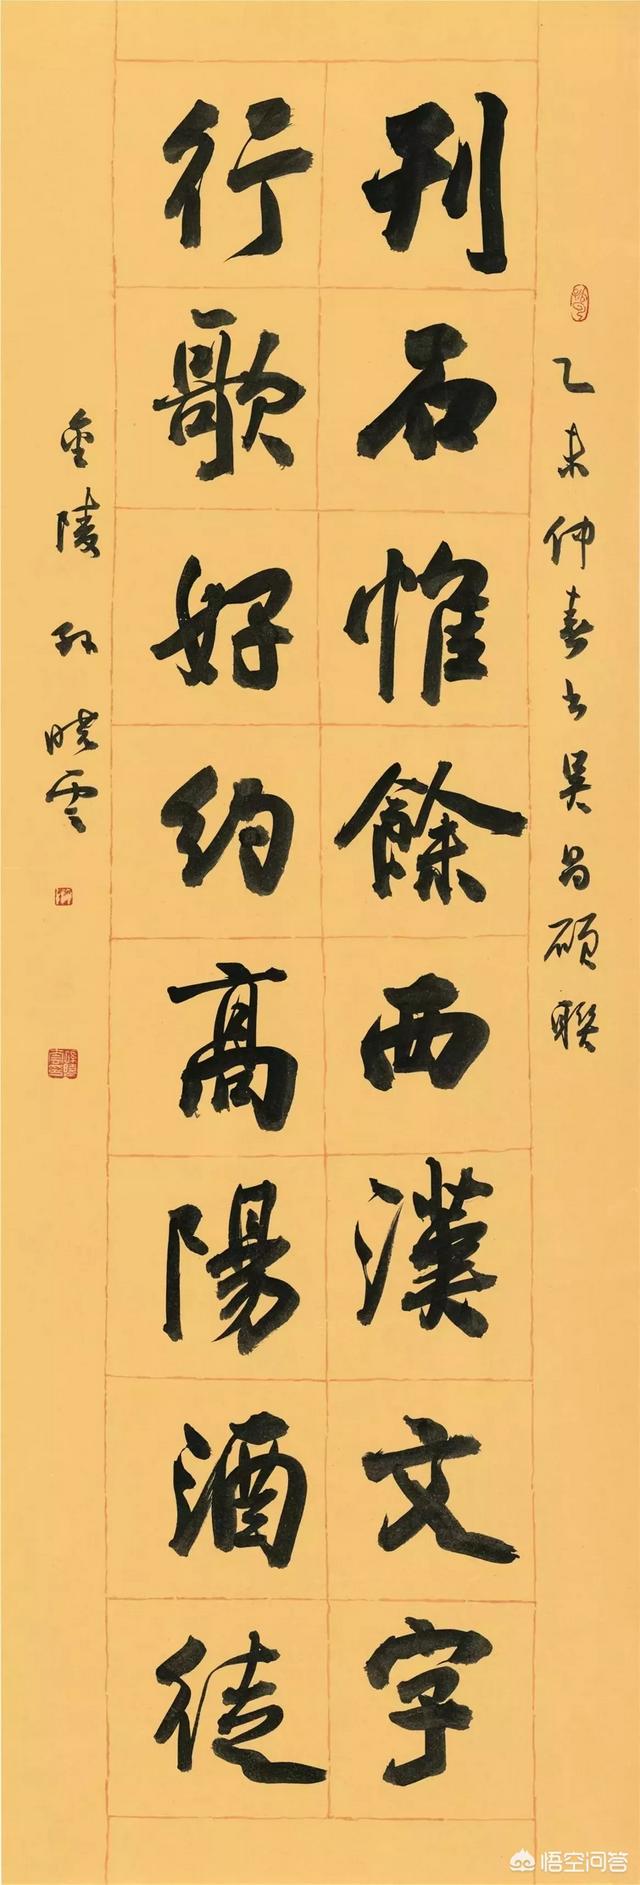 乙未仲春書吴昌碩聯
刊石惟餘西漢文字
行歌好約高陽酒徒
金陵孫曉雲
悟空问答